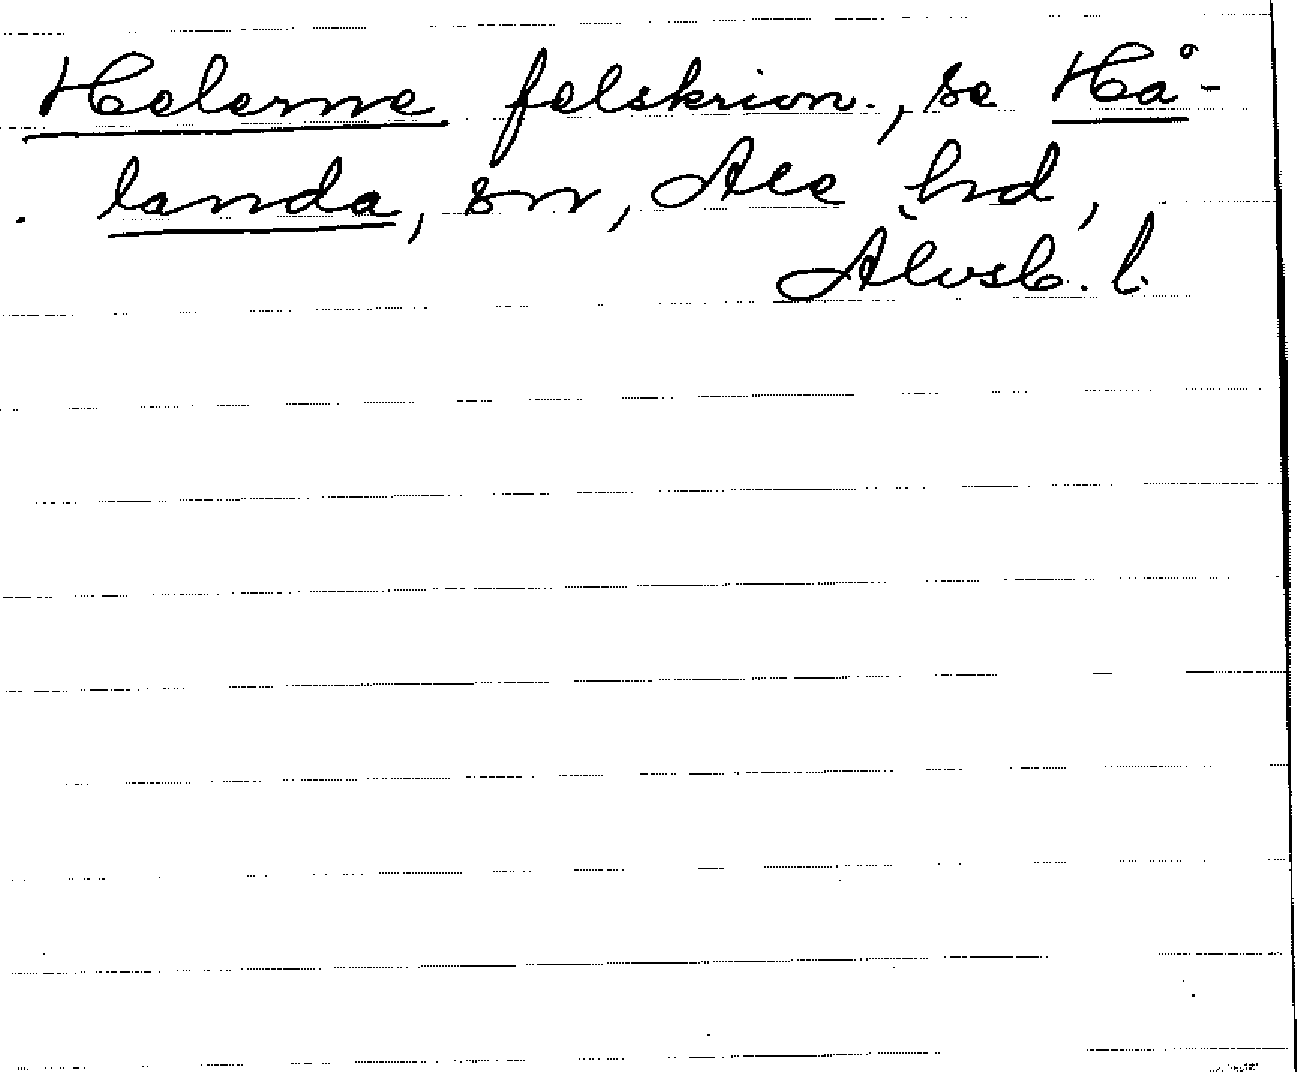 Helerne felskrivn., se Hå-
landa, sn, Ale hd,
Älvsb. l.